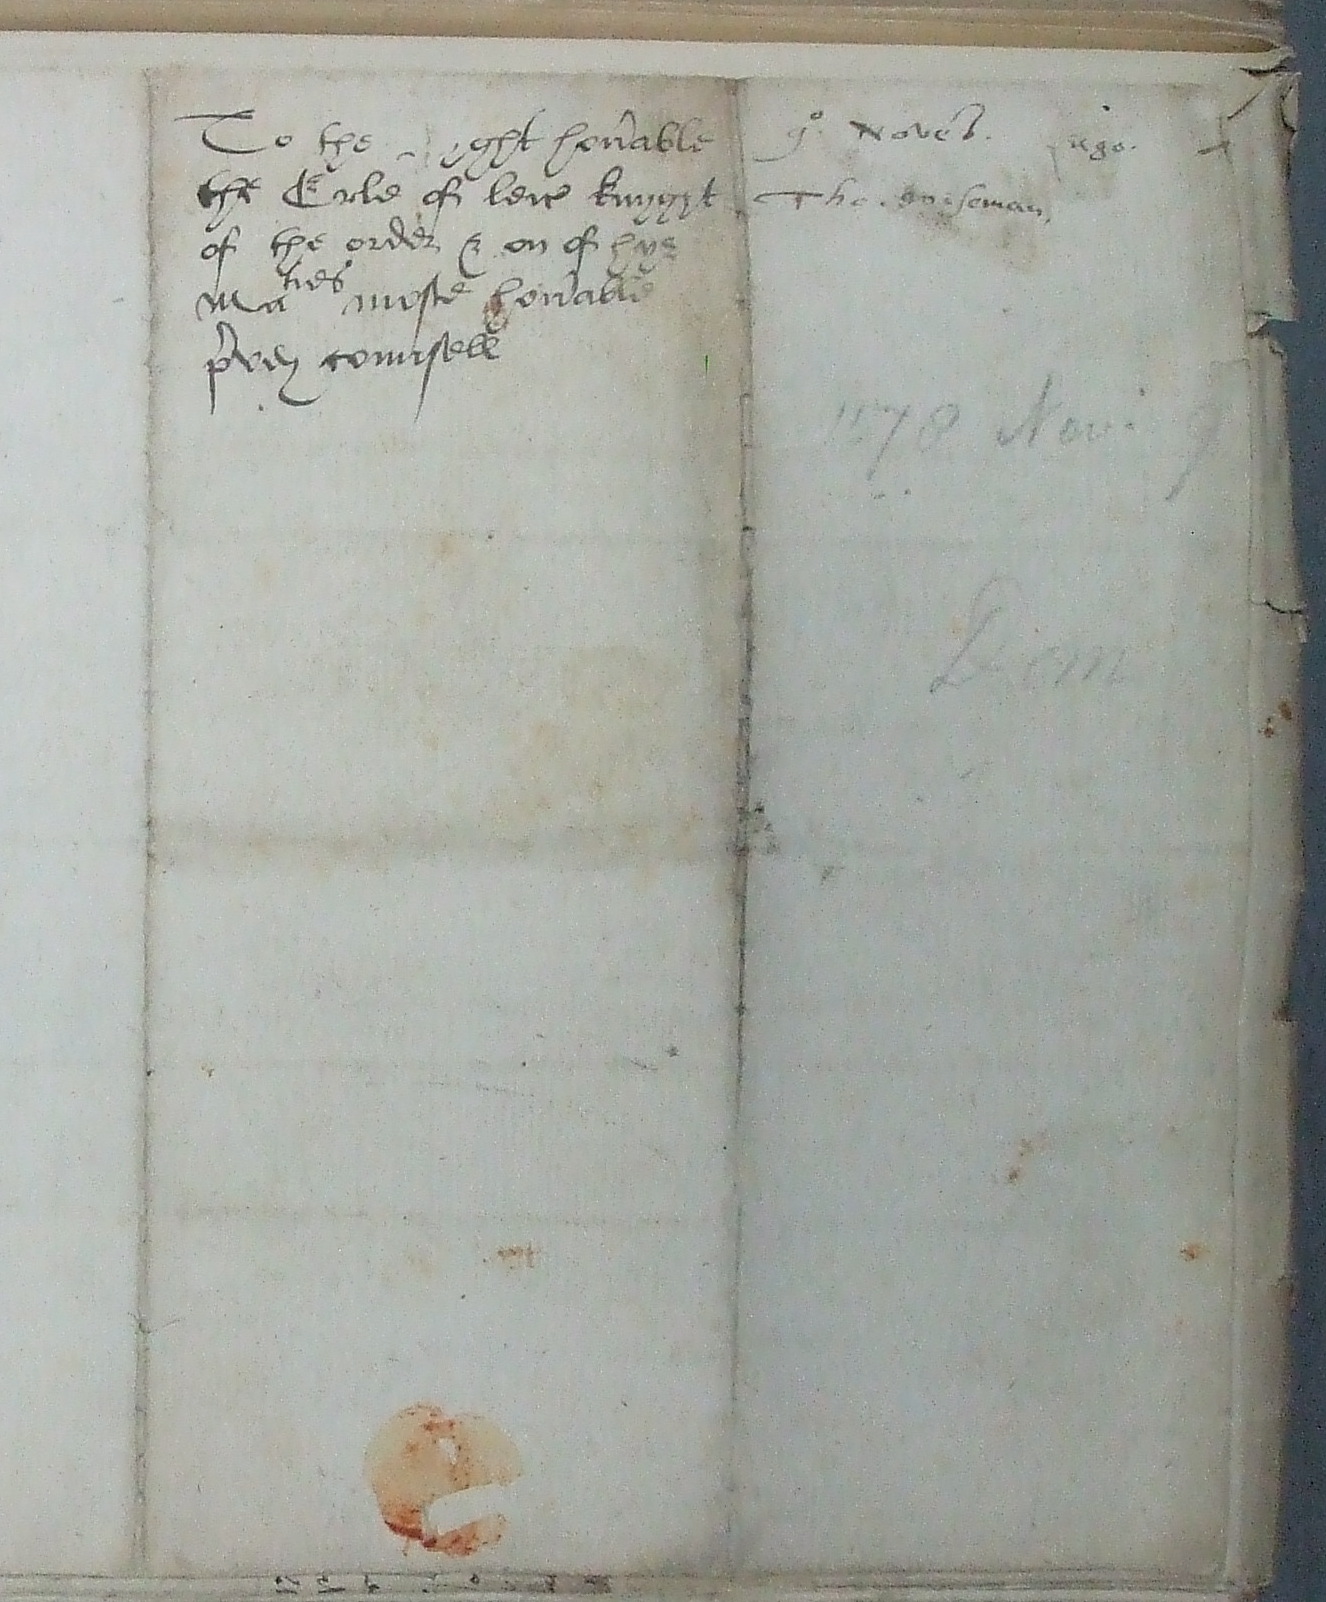 To the yght hon'able
the Erle of leic knyght
of the order & on of hys
Maties moste hon'able
p'vey counsell
9° Novēb.
Tho. wiseman,
1578 Nov: 9
Dom